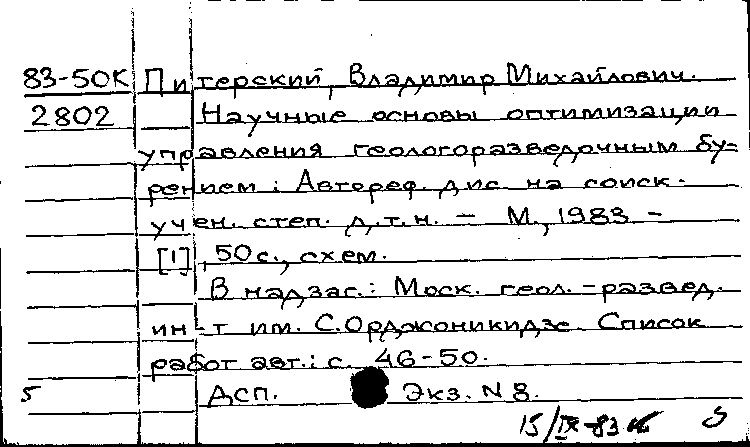 83-50К Питерский, Владимир Михайлович.
2802 Научные основы оптимизации
управления геологоразведочным бу-
рением : Автореф. дис. на соиск.
учен. степ. д.т.н. – М., 1983 –
[1], 50 с., схем.
В надзаг.: Моск. геол.-развед.
ин-т им. С.Орджоникидзе. Список
работ авт.: с. 46-50.
5 Дсп. Экз. N 8.
15/IX-83